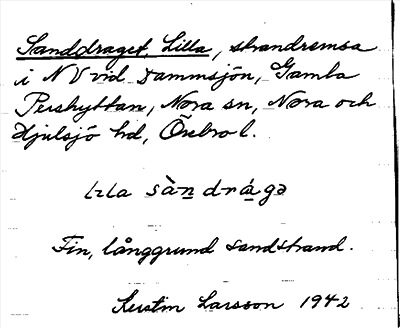 Sanddraget, Lilla, strandremsa
i NV vid Dammsjön, Gamla
Pershyttan, Nora sn, Nora och
Hjulsjö hd, Örebro l.
sàn drágə
Fin, långgrund sandstrand.
Kerstin Larsson 1942